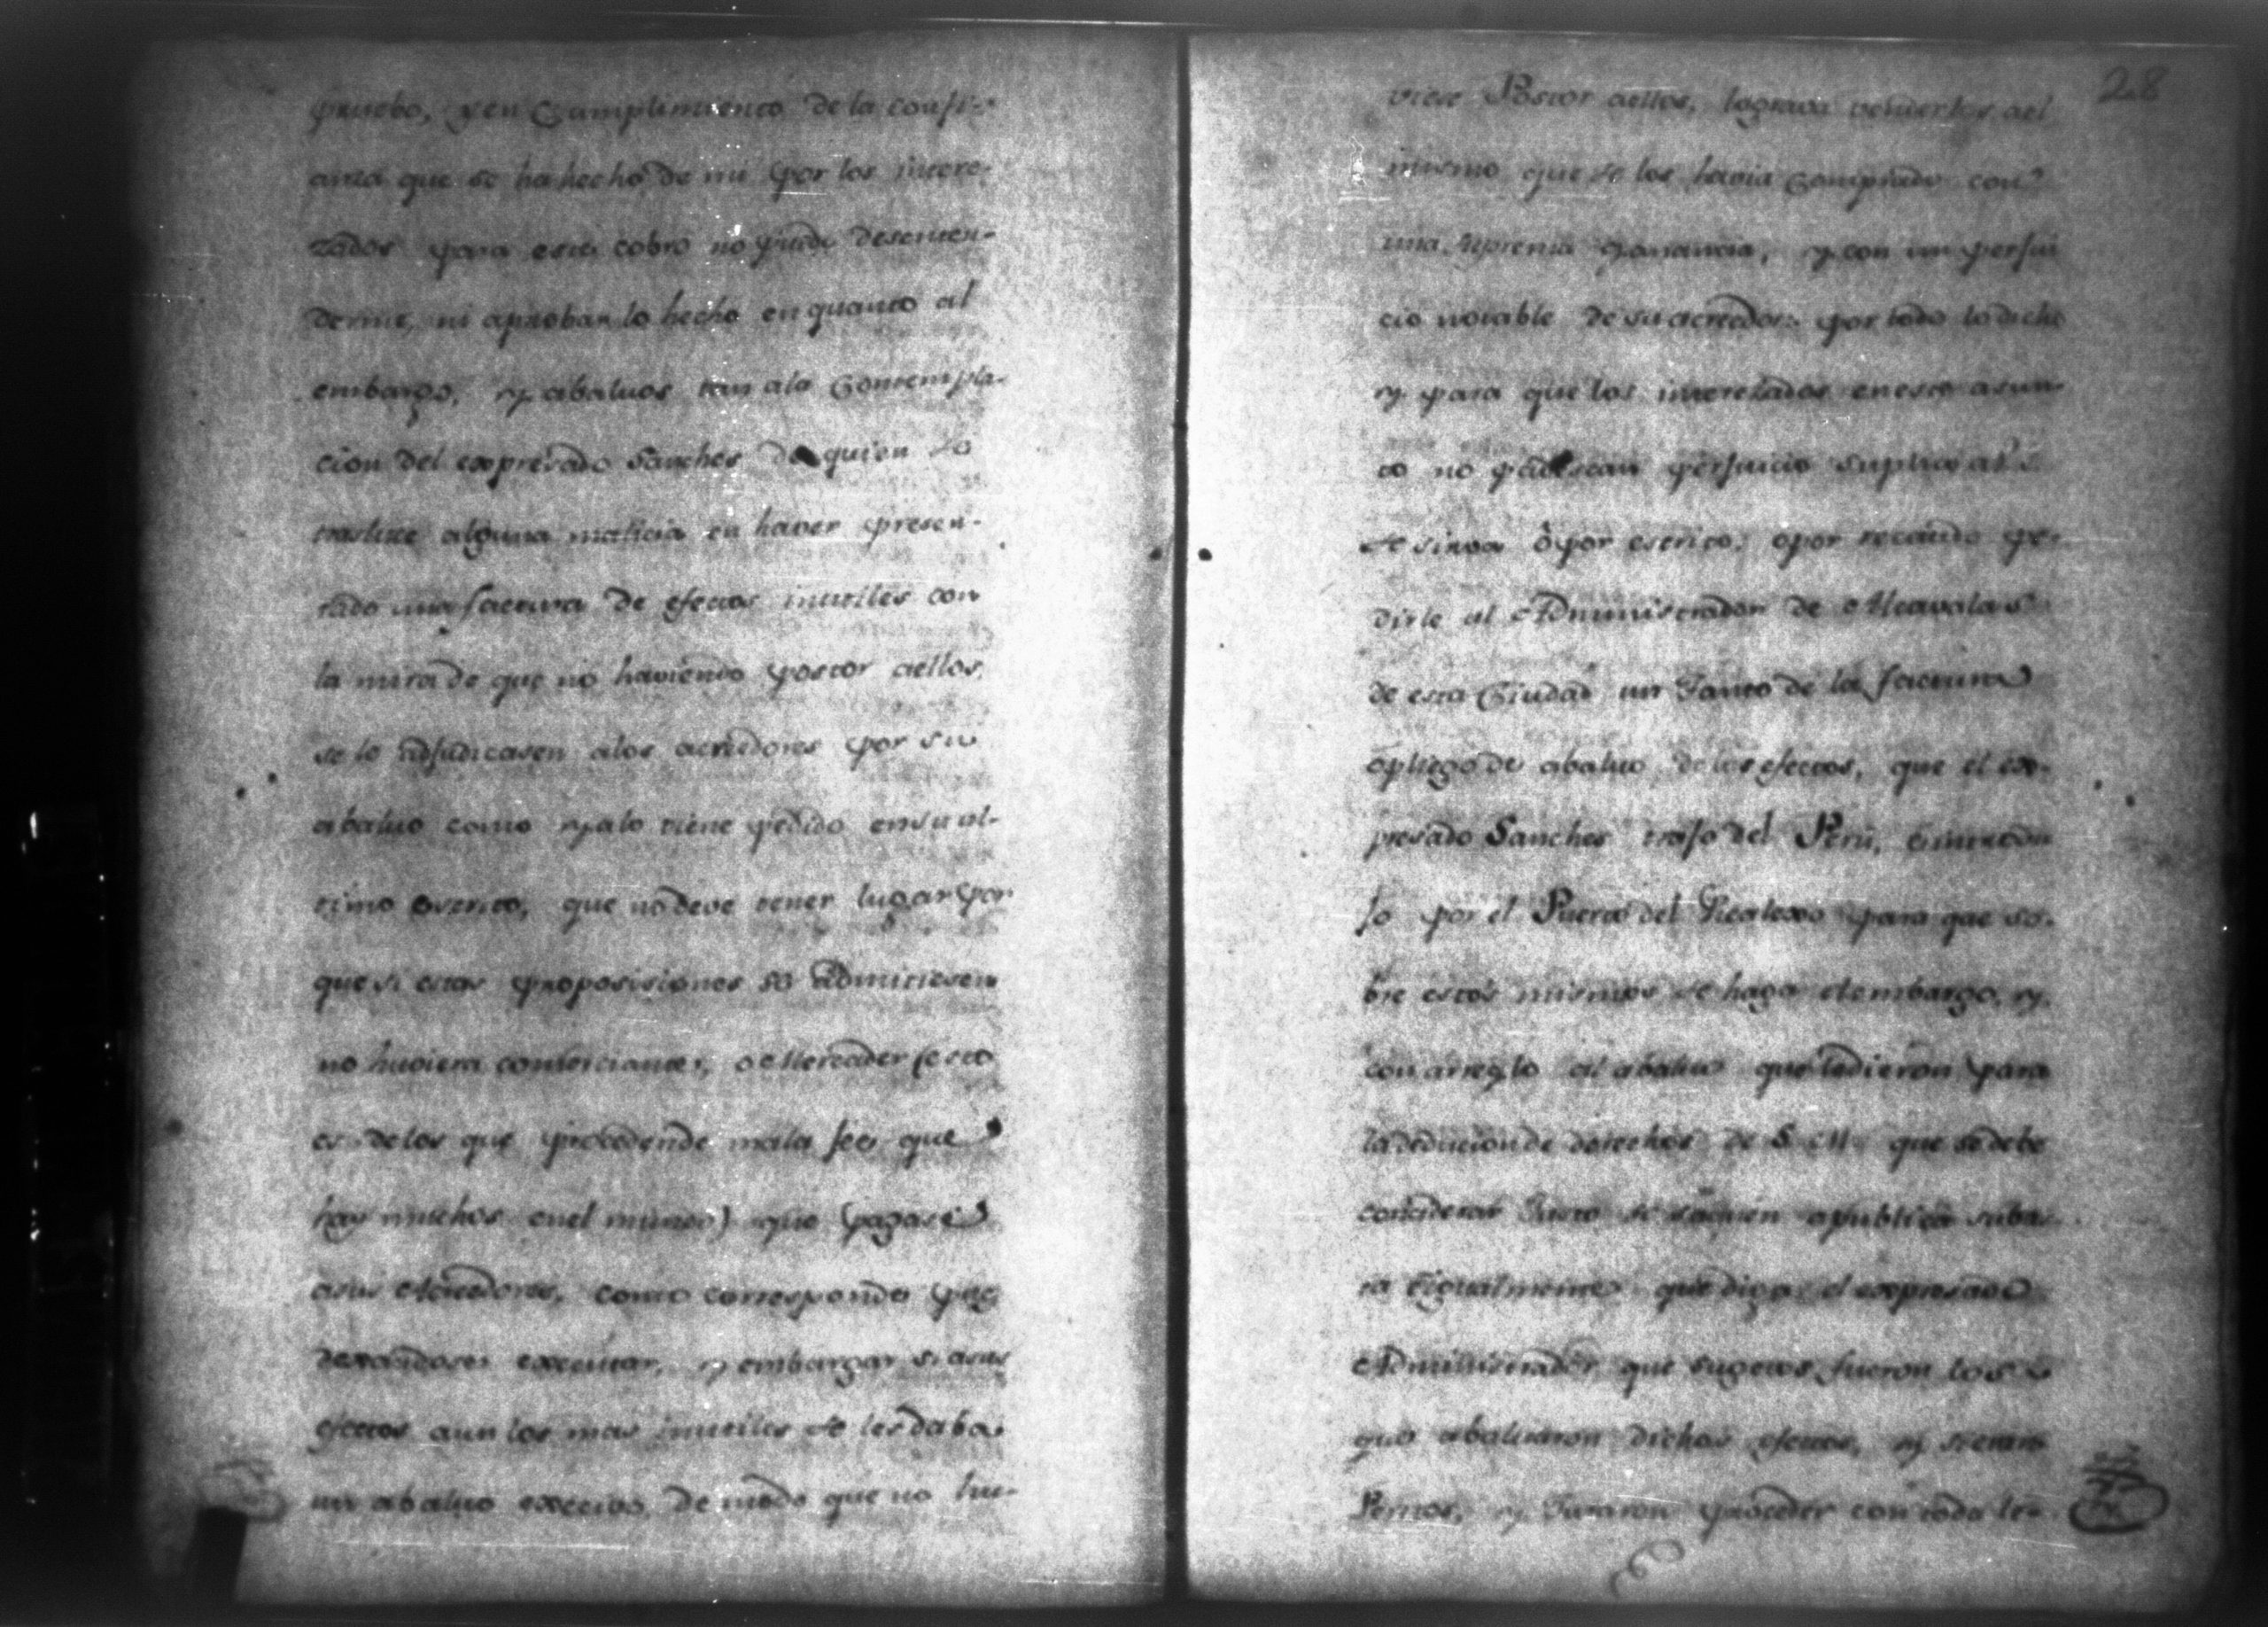 pruebo, y en Cumplimiento de la confi-
anza que se ha hecho de mi por los intere-
zados para este cobro no puedo desenten-
derme, ni aprobar lo hecho en quanto al
embargo, y abaluos tan ala Contempla-
cion del expresado Sanches de quien se
trasluce alguna malicia en haver presen-
tado una factura de efectos inutiles con
la mira de que no haviendo postor aellos,
se le adjudicasen alos acredores por su
abaluo como ya lo tiene pedido en su ul-
timo escrito, que no deve tener lugar por
que si estas proposisiones se admitiesen
no huviera comerciante, o Mercader (esto
es delos que proceden de mala fee que
hay muchos en el mundo) que pagase
asus Acredores, como corresponde pues
dexandose executar, y embargar si asus
efectos aun los mas inutiles se les daba
un abaluo excecivo de modo que no hu-
28
viese Postor aellos, lograva venderlos ael
mismo que se los havia Comprado con
una suprema ganancia, y con un perjui
cio notable de su acredor: por todo lo dicho
y para que los interezados en este asun-
to no padescan perjuicio suplico a
se sirva ô por escrito, o por recaudo pe-
dirle al Administrador de Alcavalas
de esta Ciudad un Tanto de la factura
o pliego de abaluo de los efectos, que el ex-
presado Sanches trajo del Perú, e introdu
jo por el Puerto del Realexo para que so-
bre estos mismos se haga el embargo, y
con arreglo al abaluo que le dieron para
la deducion de derechos de S. M. que se debe
considerar Justo se saquen a publica subas-
ta Eigualmente que diga el expresado
Administrador que sugetos fueron los
que abaluaron dichos efectos, y si eran
Peritos, y Juraron proceder con toda le-